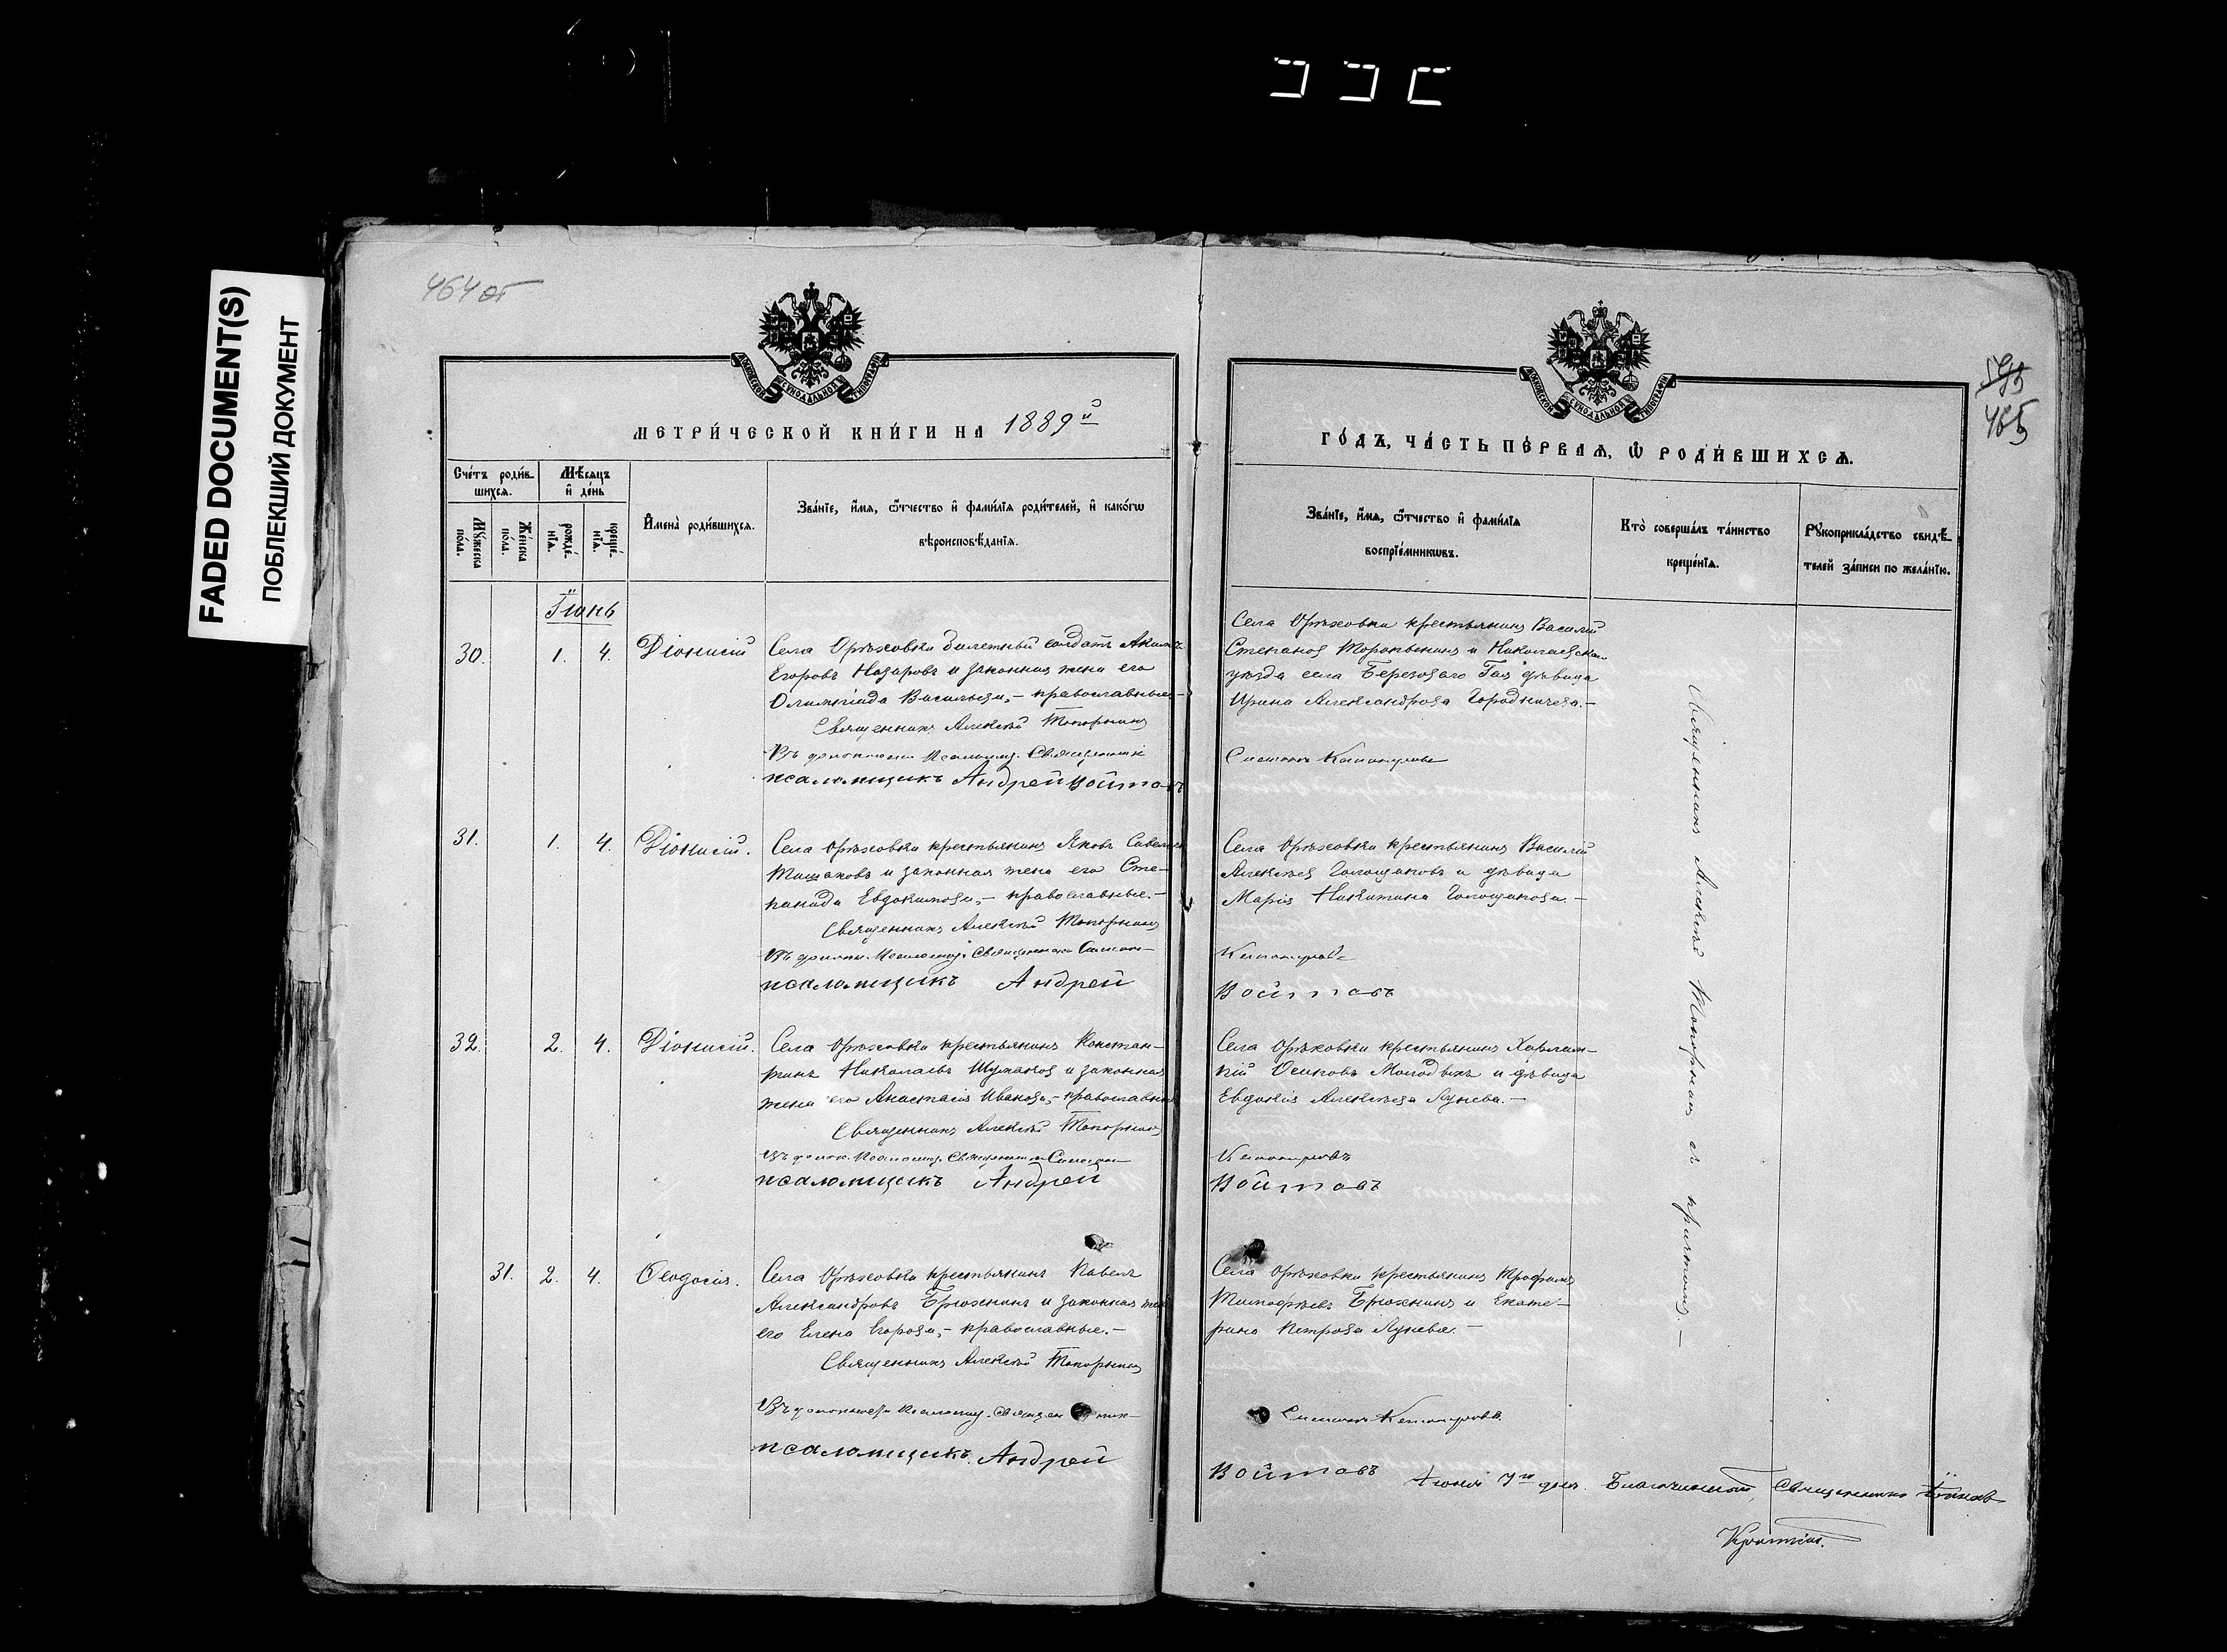 FADED DOCUMENT(S)
ПОБЛЕКШИЙ ДОКУМЕНТ
464 об
465
МЕТРИ́ЧЕСКОЙ КНИ́ГИ НА 1889й
ГО́ДЪ, ЧА́СТЬ ПЕ́РВАѦ, Ѡ҆ РОДИ́ВШИХСѦ.
МОСКОВСКОЙ СѴНОДАЛЬНОЙ ТИПОГРАФІИ
МОСКОВСКОЙ СѴНОДАЛЬНОЙ ТИПОГРАФІИ
Сче́тъ роди́в
шихсѧ.
Мꙋ́жеска
по́ла.
Же́нска
по́ла.
Мѣ́сѧцъ
и҆ де́нь
рожде́-
нїѧ.
креще́-
нїѧ.
И҆мена̀ роди́вшихсѧ.
Зва́нїе, и҆́мѧ, ѻ҆́тчество и҆ фами́лїѧ роди́телей, и҆ како́гѡ
вѣроисповѣ́данїѧ.
Зва́нїе, и҆́мѧ, ѻ҆́тчество и҆ фами́лїѧ
воспрїе́мникѡвъ.
Кто̀ соверша́лъ та́инство
креще́нїѧ.
Рꙋкоприкла́дство свидѣ́-
телей за́писи по жела́нїю.
Іюнь
30. 1. 4. Діонисій
Села Орѣховки билетный солдатъ Акимъ
Егоровъ Назаровъ и законная жена его
Олимпіада Васильева, - православные -
Священникъ Алексѣй Топорнинъ
Въ должности Псаломщ. Священникъ
псаломщикъ Андрей Войтовъ
Села Орѣховки крестьянинъ Василій
Степановъ и Николаевска
уѣзда села Березоваго Гая дѣвица
Ирина Александрова Городничева. -
Симеонъ
31. 1. 4. Діонисій.
Села Орѣховки крестьянинъ Яковъ Савельев
и законная жена его Сте-
панида Евдокимова, - православные. -
Священникъ Алексѣй Топорнинъ
Въ должн. Псаломщ. Священникъ Симеон-
псаломщикъ Андрей
Села Орѣховки крестьянинъ Василій
Алексѣевъ Голощаповъ и дѣвица
Марія Никитина Голощапова. -
Войтовъ
32. 2. 4. Діонисій.
Села Орѣховки крестьянинъ Констан-
тинъ Николаевъ и законная
жена его Анастасія Иванова, - православны
Священникъ Алексѣй Топорнинъ
Въ должн. Псаломщ. Священникъ Симеон
псаломщикъ Андрей
Села Орѣховки крестьянинъ Харлам-
пій Осиповъ Молодыхъ и дѣвица
Евдокія Алексѣева Лунева. -
Войтовъ
31. 2. 4. Ѳеодосія.
Села Орѣховки крестьянинъ Павелъ
Александровъ Брюхнинъ и законная жен
его Елена Егорова, - православные. -
Священникъ Алексѣй Топорнинъ
Въ должности Псаломщ. Священник-
псаломщикъ. Андрей
Села Орѣховки крестьянинъ Трофимъ
Тимофѣевъ Брюхнинъ и Екате-
рина Петрова Лунева. -
Симеонъ
Войтовъ
Священникъ Алексѣй Топорнинъ съ причтомъ. -
Іюня 7го дня. Благочинный, Священникъ